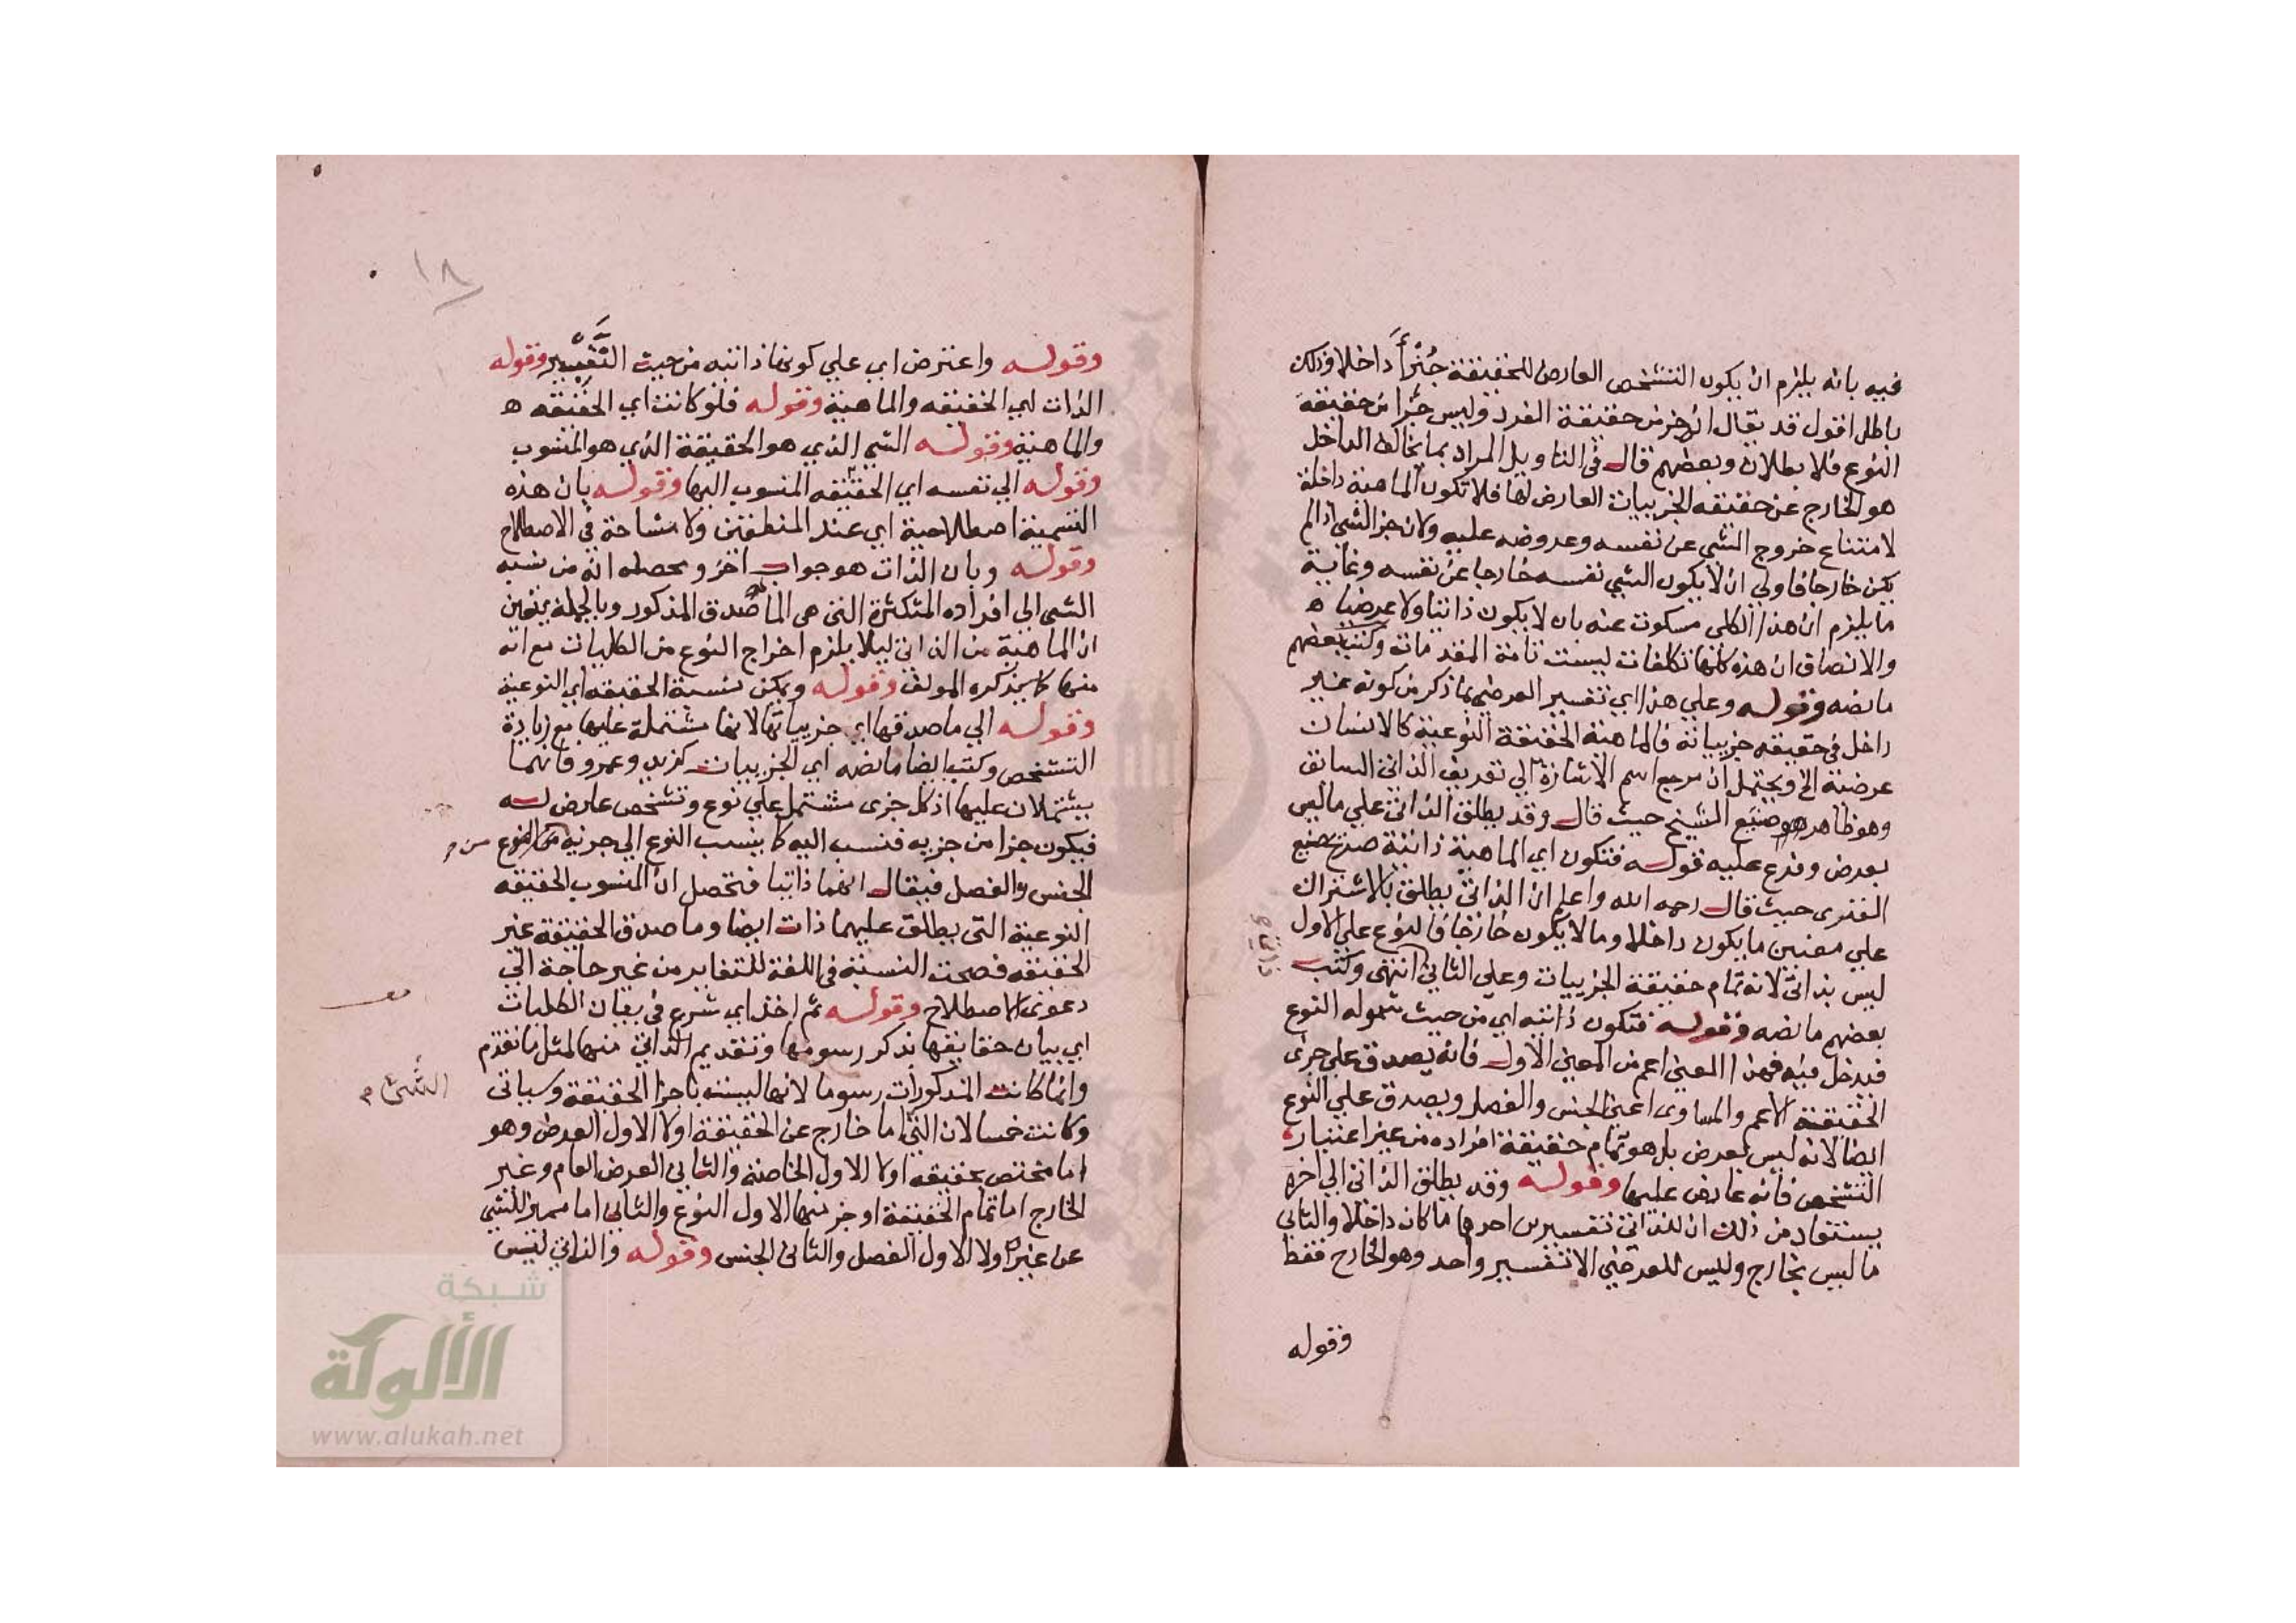 فيه بانه يلزم ان يكون التشخص العارض للحقيقة جُزْأً داخلا وذلك
باطل اقول قد يقال انه جزء من حقيقة الفرد وليس جزا من حقيقة
النوع فلا بطلان وبعضهم قال في التاويل المراد بما يخالف الداخل
هو الخارج عن حقيقه الجزييات العارض لها فلا تكون الماهية داخلة
لامتناع خروج الشي عن نفسه وعروضه عليه ولان جز الشي اذا لم
يكن خارجا فاولي ان لا يكون الشي نفسه خارجا عن نفسه وغاية
ما يلزم ان هذا الكلي مسكوت عنه بان لا يكون ذاتيا ولا عرضيا ه
والانصاف ان هذه كلها تكلفات ليست تامة المقدمات وكتب بعضهم
ما نصه وقوله وعلي هذا اي تفسير العرضي بما ذكر من كونه غير
داخل في حقيقه جزيياته فالماهية الحقيقة النوعية كالانسان
عرضية الخ ويحتمل ان مرجع اسم الاشارة الي تعريف الذاتي السابق
وهو ظاهر صنيع الشيخ حيث قال وقد يطلق الذاتي علي ما ليس
بعرض وفرع عليه قوله فتكون اي الماهية ذاتية صنيع
الفنري حيث قال رحمه الله واعلم ان الذاتي يطلق بالاشتراك
علي معنيين ما يكون داخلا وما لا يكون خارجا فالنوع علي الاول
ليس بذاتي لانه تمام حقيقة الجزييات وعلي الثاني انتهى وكتب
ذاتي
بعضهم ما نصه وقوله فتكون ذاتيه اي من حيث شموله النوع
فيدخل فيه فهذا المعني اعم من المعني الاول فانه يصدق علي جزى
الحقيقة الاعم والمساوى اعني الجنس والفصل ويصدق علي النوع
ايضا لانه ليس بعرض بل هو تمام حقيقة افراده من غير اعتبار
التشخص فانه عارض عليها وقوله وقد يطلق الذاتي الي اخره
يستفاد من ذلك ان للذاتي تفسيرين احدها ما كان داخلا والثاني
ما ليس بخارج وليس للعرضي الا تفسير واحد وهو الخارج فقط
وقوله
١٨
وقوله واعترض اي علي كونها ذاتيه من حيث التَّفْسير وقوله
الذات اي الحقيقه والماهية وقوله فلو كانت اي الحقيقه ه
والماهية وقوله الشي الذي هو الحقيقة الذي هو المنسوب
وقوله الي نفسه اي الحقيقه المنسوب اليها وقوله بان هذه
التسمية اصطلاحية اي عند المنطقيين ولا مشاحة في الاصطلاح
وقوله وبان الذات هو جواب اخر ومحصله انه من نسبه
الشي الى افراده المتكثرة التي هي الماصدق المذكور وبالجملة يتعين
ان الماهية من الذاتي ليلا يلزم اخراج النوع من الكليات مع انه
منها كما يذكره المولف وقوله ويمكن نسبة الحقيقه اي النوعية
وقوله الي ماصدقها اي جزيياتها لانها مشتملة عليها مع زيادة
التشخص وكتب ايضا ما نصه اي الجزييات كزيد وعمرو فانهما
يشتملان عليها اذ كل جزى مشتمل علي نوع وتشخص عارض له
فيكون جزا من جزيه فنسب اليه كما ينسب النوع الي جزئيه من
الجنس والفصل فيقال انهما ذاتيا فتحصل ان المنسوب الحقيقه
النوعية التي يطلق عليها ذات ايضا وماصدق الحقيقة غير
الحقيقه فصحت النسبة في اللغة للتغاير من غير حاجة الي
دعوى الاصطلاح وقوله ثم اخذ اي شرع في بيان الكليات
اي بيان حقايقها بذكر رسومها وتقديم الذاتي منها لمثل ما تقدم
وانما كانت المذكورات رسوما لانها ليست باجزا الحقيقة وسياتى
الشيء م
وكانت خمسا لان اما خارج عن الحقيقة اولا الاول العرض وهو
اما مختص بحقيقه اولا الاول الخاصة والثاني العرض العام وغير
الخارج اما تمام الحقيقة او جزئها الاول النوع والثاني اما مميز للشي
عن غيره اولا الاول الفصل والثاني الجنس وقوله والذاتي ليس
شبكة
الألوكة
www.alukah.net